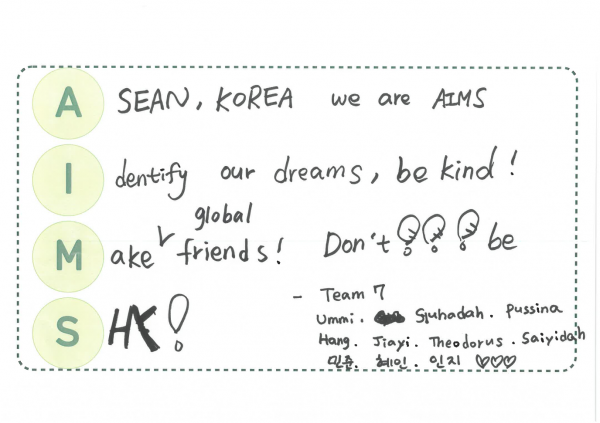 A SEAN, KOREA we are AIMS
I dentify our dreams, be kind!
global
M ake friends! Don't be
S HY!
- Team 7
Ummi. Sjuhadah. Pussina
Hang. Jiayi. Theodorus. Saiyidah
민준. 혜인. 인지 ♡♡♡